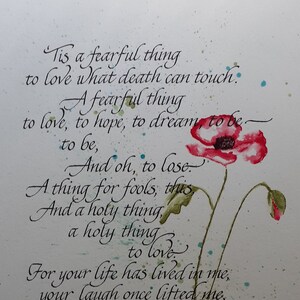 Tis a fearful thing
to love what death can touch.
A fearful thing
to love, to hope, to dream, to be –
to be,
And oh, to lose.
A thing for fools, this,
And a holy thing,
a holy thing
to love.
For your life has lived in me,
your laugh once lifted me,